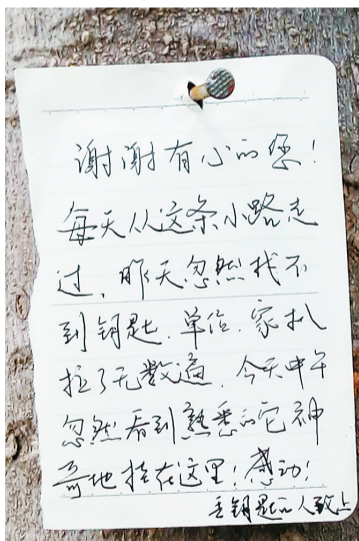 谢谢有心的您!
每天从这条小路走
过、昨天忽然找不
到钥匙.单位.家扒
拉了无数遍.今天中午
忽然看到熟悉的它神
奇地挂在这里!感动!
丢钥匙的人致上